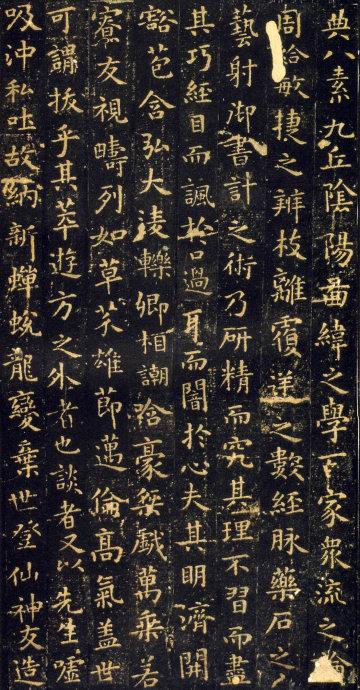 典八素九丘陰陽啚緯之學百家衆流之論
周給敏捷之辨枝離覆逆之數經脉藥石之
藝射御書計之術乃研精而究其理不習而盡
其巧經目而諷於口過耳而闇於心夫其明濟開
豁苞含弘大淩轢卿相謿哈豪桀戲萬乘若
寮友視疇列如草芥雄節邁倫高氣盖世
可謂拔乎其萃遊方之外者也談者又以先生噓
吸沖私吐故納新蟬蛻龍變棄世登仙神友造